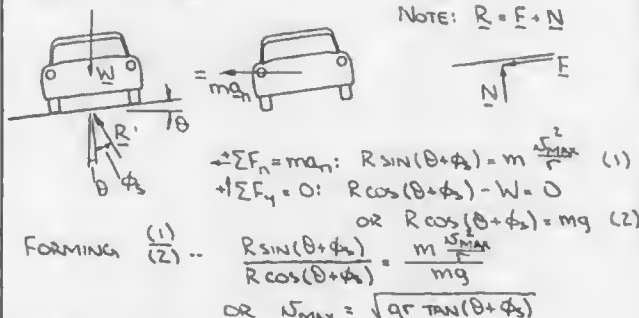 NOTE: R = F + N
W
=
ma_n
F
N
θ
R
θ φ_s
+← ΣF_n = ma_n: R SIN(θ+φ_s) = m v²_MAX/r (1)
+↑ ΣF_y = 0: R COS(θ+φ_s) - W = 0
OR R COS(θ+φ_s) = mg (2)
FORMING (1)/(2) .. R SIN(θ+φ_s)/R COS(θ+φ_s) = m v²_MAX/r / mg
OR v_MAX = √gr TAN(θ+φ_s)